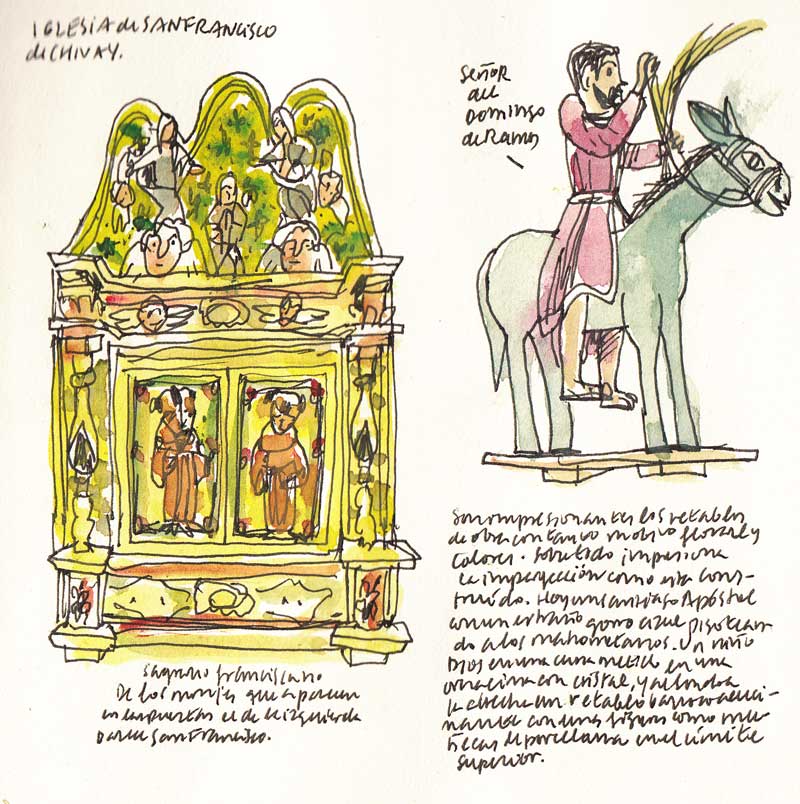 IGLESIA de SAN FRANCISCO
de CHIVAY.
SEÑOR
del
Domingo
de Ramos
Sagrario franciscano
De los monjes que aparecen
en las puertas el de la izquierda
parece San Francisco.
Son impresionantes los retablos
de obra con tanto motivo floral y
colores. Sobretodo impresiona
la imperfección como está cons-
truido. Hay un Santiago Apóstol
con un extraño gorro azul pisotean-
do a los mahometanos. Un niño
Dios en una cuna metido en una
ornacina con cristal, y al fondo a
la derecha un retablo barroco
con unas figuras como mu-
ñecas de porcellana en el límite
superior.